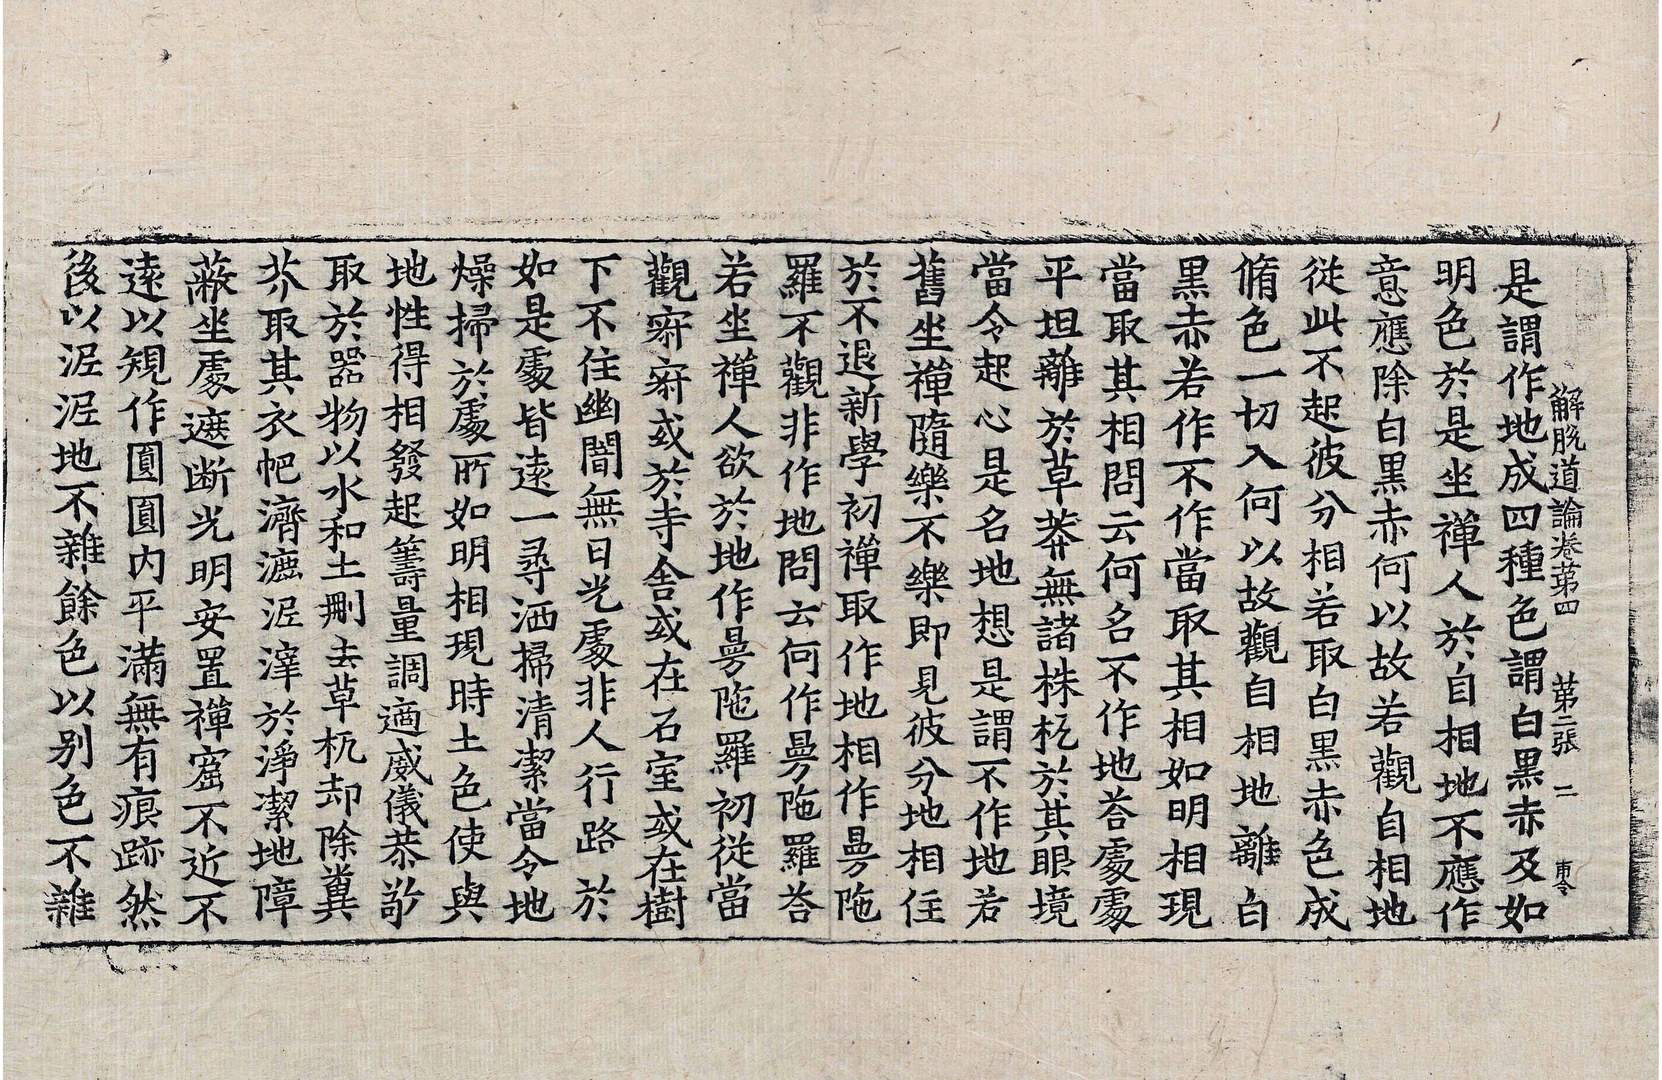 解脫道論卷苐四　苐二張　二
是謂作地成四種色謂白黑赤及如
明色於是坐禪人於自相地不應作
意應除白黑赤何以故若觀自相地
從此不起彼分相若取白黑赤色成
脩色一切入何以故觀自相地離白
黑赤若作不作當取其相如明相現
當取其相問云何名不作地荅處處
平坦離於草莽無諸株杌於其眼境
當令起心是名地想是謂不作地若
舊坐禪隨樂不樂即見彼分地相住
於不退新學初禪取作地相作曼陁
羅不觀非作地問云何作曼陁羅荅
若坐禪人欲於地作曼陁羅初從當
觀寂寂或於寺舍或在石室或在樹
下不住幽闇無日光處非人行路於
如是處皆遠一尋洒掃清潔當令地
燥掃於處所如明相現時土色使與
地性得相發起籌量調適威儀恭敬
取於器物以水和土刪去草杌却除糞
芥取其衣帊濟漉泥滓於淨潔地障
蔽坐處遮断光明安置禪窟不近不
遠以規作圓圓內平滿無有痕跡然
後以泥泥地不雜餘色以别色不雜